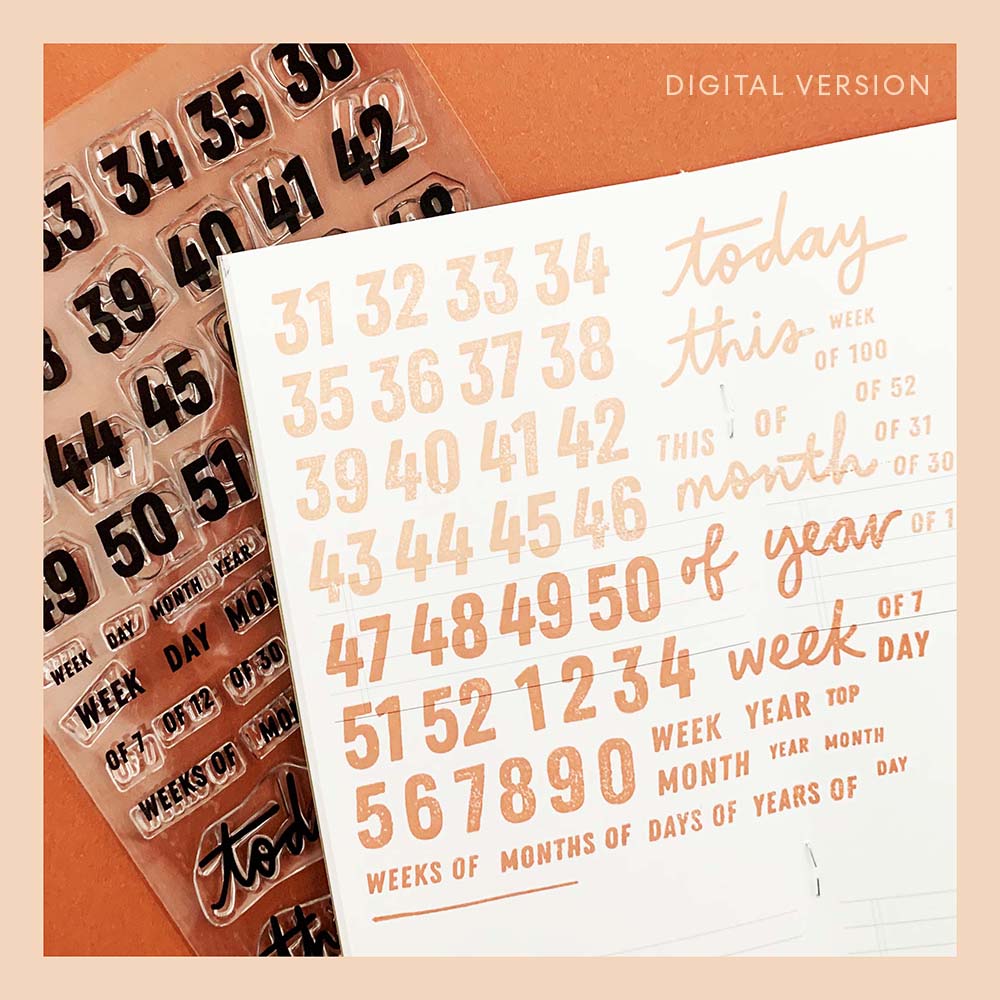 DIGITAL VERSION
34 35 36
39 40 41 42
44 45
49 50 51
WEEK DAY MONTH YEAR
WEEK DAY
OF 7 OF 12 OF 30
WEEKS OF
31 32 33 34
35 36 37 38
39 40 41 42
43 44 45 46
47 48 49 50
51 52 1 2 3 4
5 6 7 8 9 0
WEEKS OF MONTHS OF DAYS OF YEARS OF
today
this WEEK
OF 100
OF 52
THIS OF OF 31
month OF 30
of year OF 1
week OF 7
DAY
WEEK YEAR TOP
MONTH YEAR MONTH
DAY